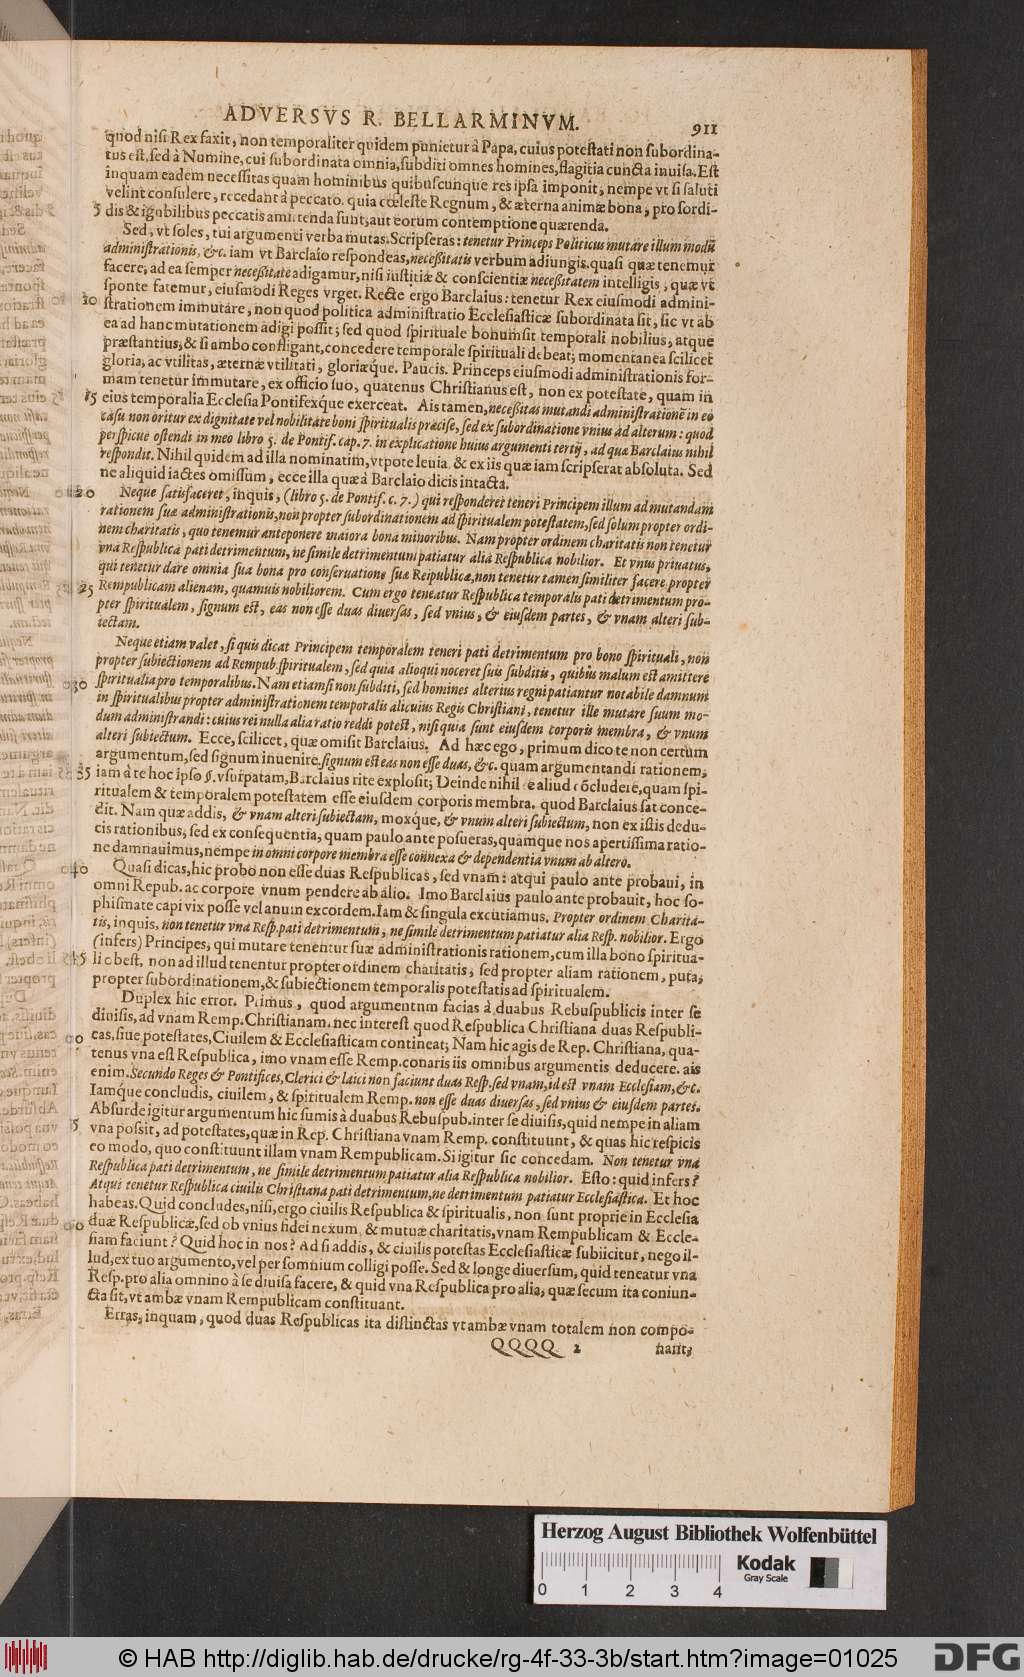 ADVERSVS R. BELLARMINVM. 911
quod nisi Rex faxit, non temporaliter quidem punietur à Papa, cuius potestati non subordina-
tus est, sed à Numine, cui subordinata omnia, subditi omnes homines, flagitia cuncta inuisa. Est
inquam eadem necessitas quam hominibus quibuscunque res ipsa imponit, nempe vt si saluti
velint consulere, recedant à peccato. quia cœleste Regnum, & æterna animæ bona, pro sordi-
5 dis & ignobilibus peccatis amittenda sunt, aut eorum contemptione quærenda.
Sed, vt soles, tui argumenti verba mutas. Scripseras: tenetur Princeps Politicus mutare illum modũ
administrationis, &c. iam vt Barclaio respondeas, necessitatis verbum adiungis. quasi quæ tenemur
facere, ad ea semper necessitate adigamur, nisi iustitiæ & conscientiæ necessitatem intelligis, quæ vt
sponte fatemur, eiusmodi Reges vrget. Recte ergo Barclaius: tenetur Rex eiusmodi admini-
10 strationem immutare, non quod politica administratio Ecclesiasticæ subordinata sit, sic vt ab
ea ad hanc mutationem adigi possit; sed quod spirituale bonum sit temporali nobilius, atque
præstantius, & si ambo confligant, concedere temporale spirituali debeat; momentanea scilicet
gloria, ac vtilitas, æternæ vtilitati, gloriæque. Paucis. Princeps eiusmodi administrationis for-
mam tenetur immutare, ex officio suo, quatenus Christianus est, non ex potestate, quam in
15 eius temporalia Ecclesia Pontifexque exerceat. Ais tamen, necessitas mutandi administrationẽ in eo
casu non oritur ex dignitate vel nobilitate boni spiritualis præcise, sed ex subordinatione vnius ad alterum: quod
perspicue ostendi in meo libro 5. de Pontif. cap. 7. in explicatione huius argumenti tertij, ad qua Barclaius nihil
respondit. Nihil quidem ad illa nominatim, vtpote leuia. & ex iis quæ iam scripserat absoluta. Sed
ne aliquid iactes omissum, ecce illa quæ à Barclaio dicis intacta.
20 Neque satisfaceret, inquis, (libro 5. de Pontif. c. 7.) qui responderet teneri Principem illum ad mutandam
rationem suæ administrationis, non propter subordinationem ad spiritualem potestatem, sed solum propter ordi-
nem charitatis, quo tenemur anteponere maiora bona minoribus. Nam propter ordinem charitatis non tenetur
vna Respublica pati detrimentum, ne simile detrimentum patiatur alia Respublica nobilior. Et vnus priuatus,
qui tenetur dare omnia sua bona pro conseruatione suæ Reipublicæ, non tenetur tamen similiter facere propter
25 Rempublicam alienam, quamuis nobiliorem. Cum ergo teneatur Respublica temporalis pati detrimentum pro-
pter spiritualem, signum est, eas non esse duas diuersas, sed vnius, & eiusdem partes, & vnam alteri sub-
iectam.
Neque etiam valet, si quis dicat Principem temporalem teneri pati detrimentum pro bono spirituali, non
propter subiectionem ad Rempub. spiritualem, sed quia alioqui noceret suis subditis, quibus malum est amittere
30 spiritualia pro temporalibus. Nam etiamsi non subditi, sed homines alterius regni patiantur notabile damnum
in spiritualibus propter administrationem temporalis alicuius Regis Christiani, tenetur ille mutare suum mo-
dum administrandi: cuius rei nulla alia ratio reddi potest, nisi quia sunt eiusdem corporis membra, & vnum
alteri subiectum. Ecce, scilicet, quæ omisit Barclaius. Ad hæc ego, primum dico te non certum
argumentum, sed signum inuenire. signum est eas non esse duas, &c. quam argumentandi rationem,
35 iam à te hoc ipso §. vsurpatam, Barclaius rite explosit; Deinde nihil te aliud cõcludere, quam spi-
ritualem & temporalem potestatem esse eiusdem corporis membra. quod Barclaius sat conce-
dit. Nam quæ addis, & vnam alteri subiectam, moxque, & vnum alteri subiectum, non ex istis dedu-
cis rationibus, sed ex consequentia, quam paulo ante posueras, quamque nos apertissima ratio-
ne damnauimus, nempe in omni corpore membra esse connexa & dependentia vnum ab altero.
40 Quasi dicas, hic probo non esse duas Respublicas, sed vnam: atqui paulo ante probaui, in
omni Repub. ac corpore vnum pendere ab alio. Imo Barclaius paulo ante probauit, hoc so-
phismate capi vix posse vel anum excordem. Iam & singula excutiamus. Propter ordinem Charita-
tis, inquis, non tenetur vna Resp. pati detrimentum, ne simile detrimentum patiatur alia Resp. nobilior. Ergo
(infers) Principes, qui mutare tenentur suæ administrationis rationem, cum illa bono spiritua-
45 li obest, non ad illud tenentur propter ordinem charitatis, sed propter aliam rationem, puta,
propter subordinationem, & subiectionem temporalis potestatis ad spiritualem.
Duplex hic error. Primus, quod argumentum facias à duabus Rebuspublicis inter se
diuisis, ad vnam Remp. Christianam. nec interest quod Respublica Christiana duas Respubli-
cas, siue potestates, Ciuilem & Ecclesiasticam contineat; Nam hic agis de Rep. Christiana, qua-
tenus vna est Respublica, imo vnam esse Remp. conaris iis omnibus argumentis deducere. ais
enim. Secundo Reges & Pontifices, Clerici & laici non faciunt duas Resp. sed vnam, id est vnam Ecclesiam, &c.
Iamque concludis, ciuilem, & spiritualem Remp. non esse duas diuersas, sed vnius & eiusdem partes.
Absurde igitur argumentum hic sumis à duabus Rebuspub. inter se diuisis, quid nempe in aliam
vna possit, ad potestates, quæ in Rep. Christiana vnam Remp. constituunt, & quas hic respicis
eo modo, quo constituunt illam vnam Rempublicam. Si igitur sic concedam. Non tenetur vna
Respublica pati detrimentum, ne simile detrimentum patiatur alia Respublica nobilior. Esto: quid infers?
Atqui tenetur Respublica ciuilis Christiana pati detrimentum, ne detrimentum patiatur Ecclesiastica. Et hoc
habeas. Quid concludes, nisi, ergo ciuilis Respublica & spiritualis, non sunt proprie in Ecclesia
duæ Respublicæ, sed ob vnius fidei nexum, & mutuæ charitatis, vnam Rempublicam & Eccle-
siam faciunt? Quid hoc in nos? Ad si addis, & ciuilis potestas Ecclesiasticæ subiicitur, nego il-
lud, ex tuo argumento, vel per somnium colligi posse. Sed & longe diuersum, quid teneatur vna
Resp. pro alia omnino à se diuisa facere, & quid vna Respublica pro alia, quæ secum ita coniun-
cta sit, vt ambæ vnam Rempublicam constituant.
Erras, inquam, quod duas Respublicas ita distinctas vt ambæ vnam totalem non compo-
QQQQ 2 nant;
Herzog August Bibliothek Wolfenbüttel
0 1 2 3 4
Kodak
Gray Scale
© HAB http://diglib.hab.de/drucke/rg-4f-33-3b/start.htm?image=01025
DFG